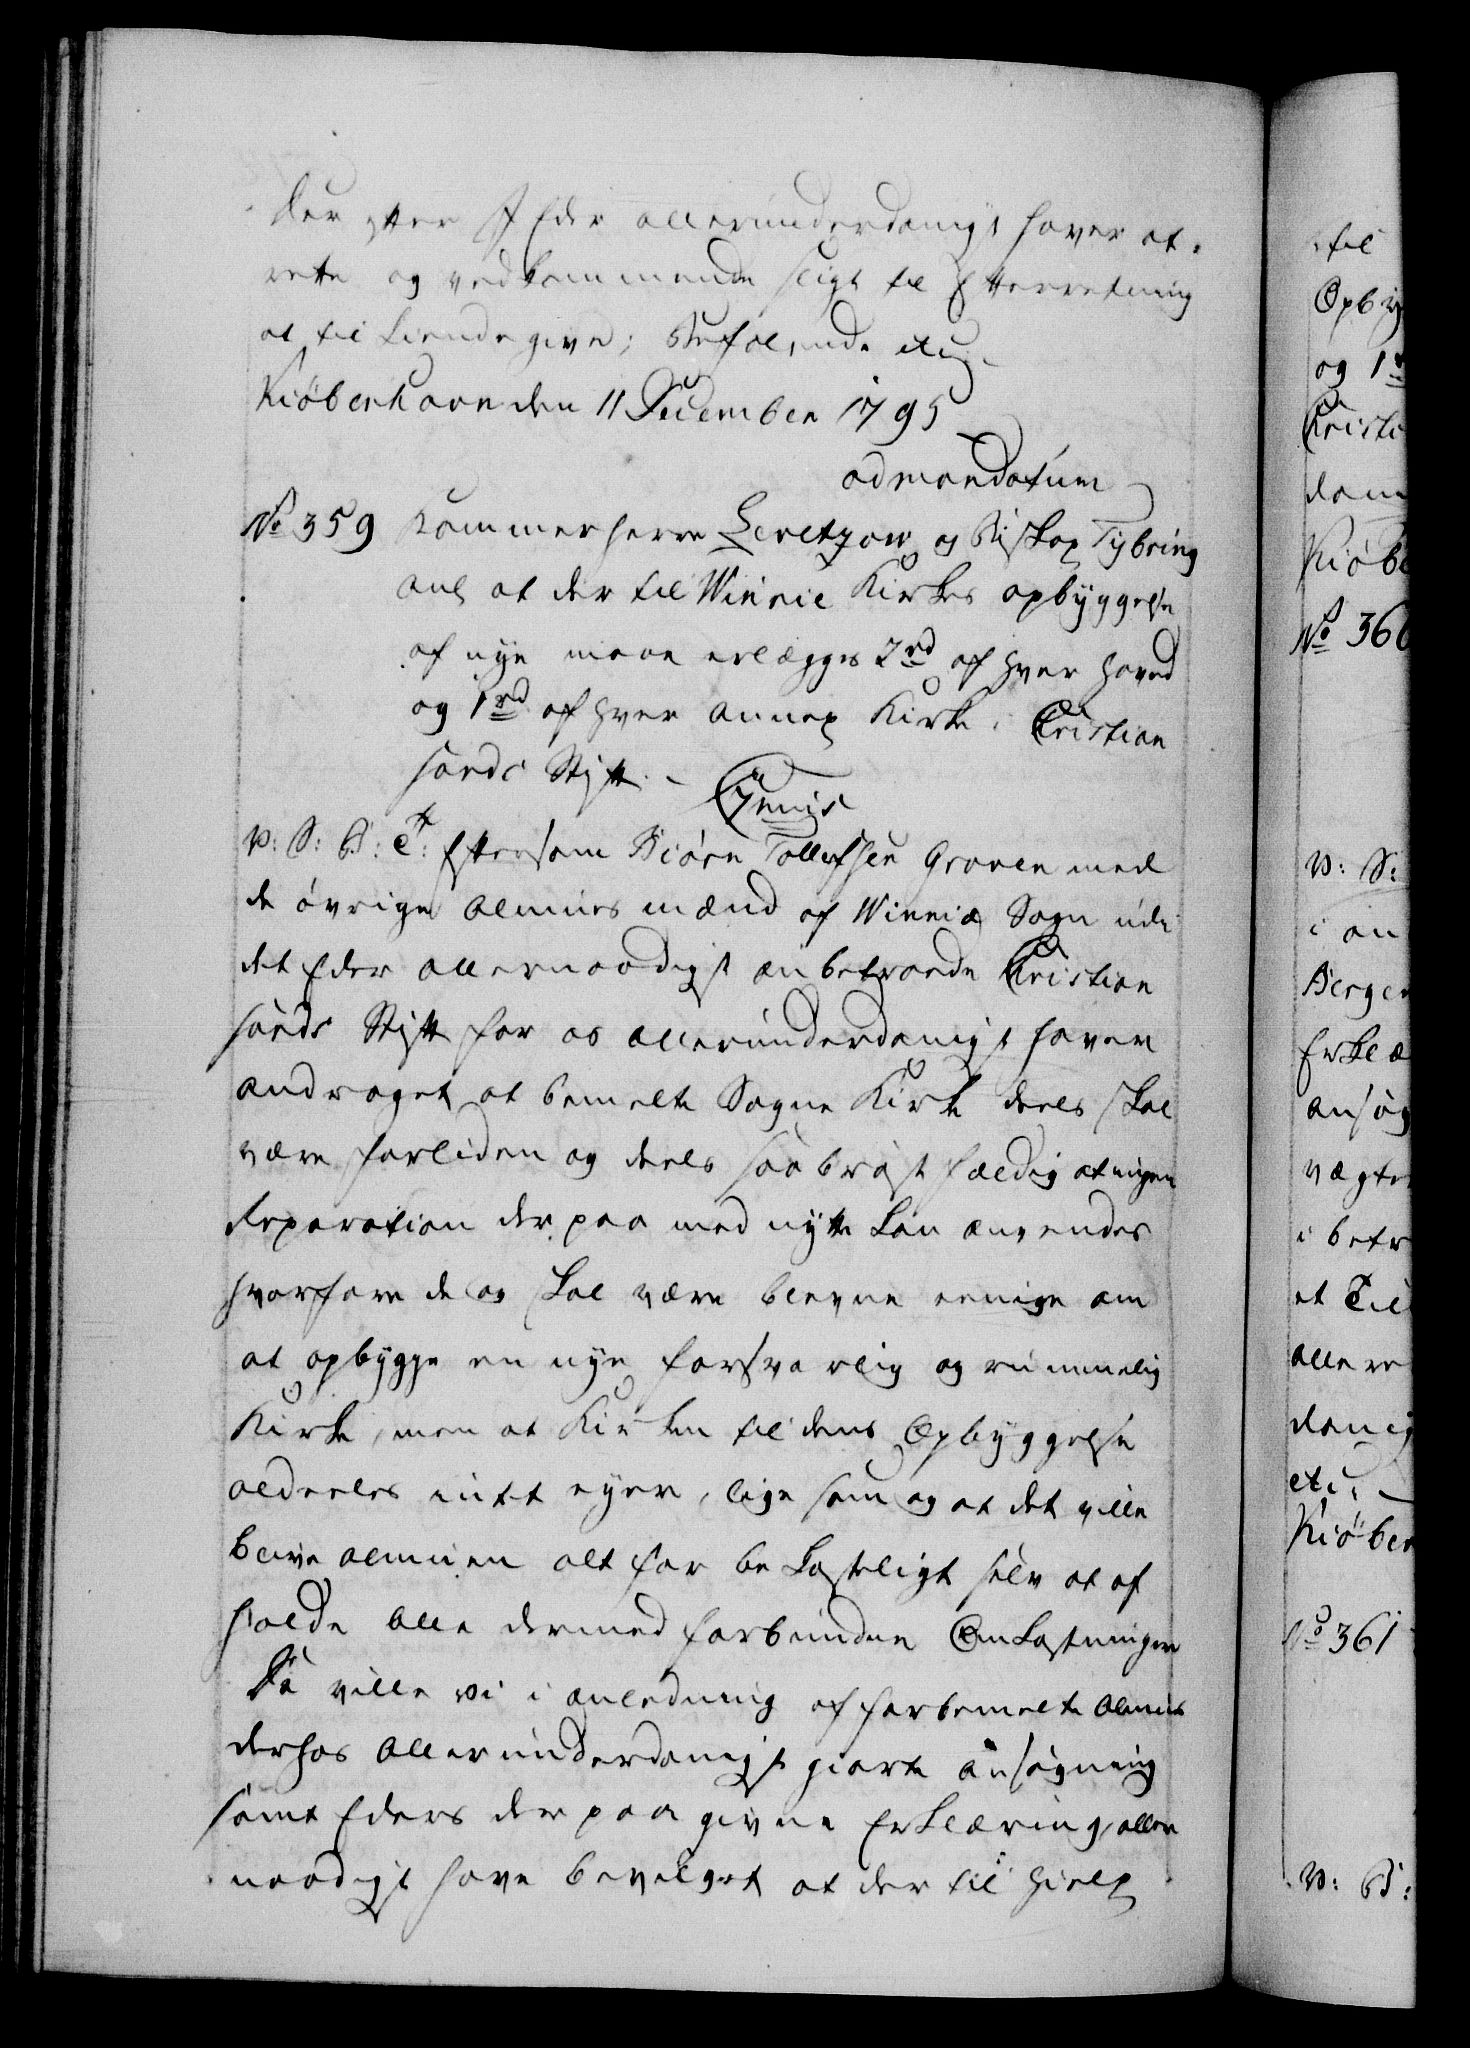 Der efter I Eder allerunderdanigst haver at
rette og vedkommende sligt til Efterretning
at til kiende give; Befalende etc.
Kiöbenhavn den 11 December 1795
ad mandatum
No 359 Kammerherre Levetzow og Biskop Tybring
anl at der til Winnie Kirkes opbyggelse
af nye maae erlægges 2rd af hver Hoved
og 1rd af hver Annex Kirke i Christian
sands Stift. –
Gemis
V: S: B: T: Eftersom Biörn Tollefsen Groven med
de övrige Almues mænd af Winniæ Sogn udi
det Eder allernaadigst anbetroede Christian
sands Stift for os allerunderdanigst haver
andraget at bemelte Sogne Kirke deels skal
være forliden og deels saa bröstfældig at ingen
Reparation derpaa med nytte kan anvendes
hvorfore de og skal være blevne eenige om
at opbygge en nye forsvarlig og rummelig
Kirke, men at Kirken til dens Opbyggelse
aldeeles intet eyer, lige som og at det ville
blive Almuen alt for bekosteligt selv at af
holde alle dermed forbundne Omkostninger
Da ville vi i anledning af forbemelte Almues
derhos allerunderdanigst giorte Ansögning
samt Eders derpaa givne Erklæring, aller
naadigst have bevilget at der til Hielp
til
Opbyg
og 1rd
Christi
dani
Kiöbe
No 360
V: S:
i an
Bergen
Erklæ
ansög
vægte
i betr
et Til
allere
danig
etc.
Kiöben
No 361
V: B: